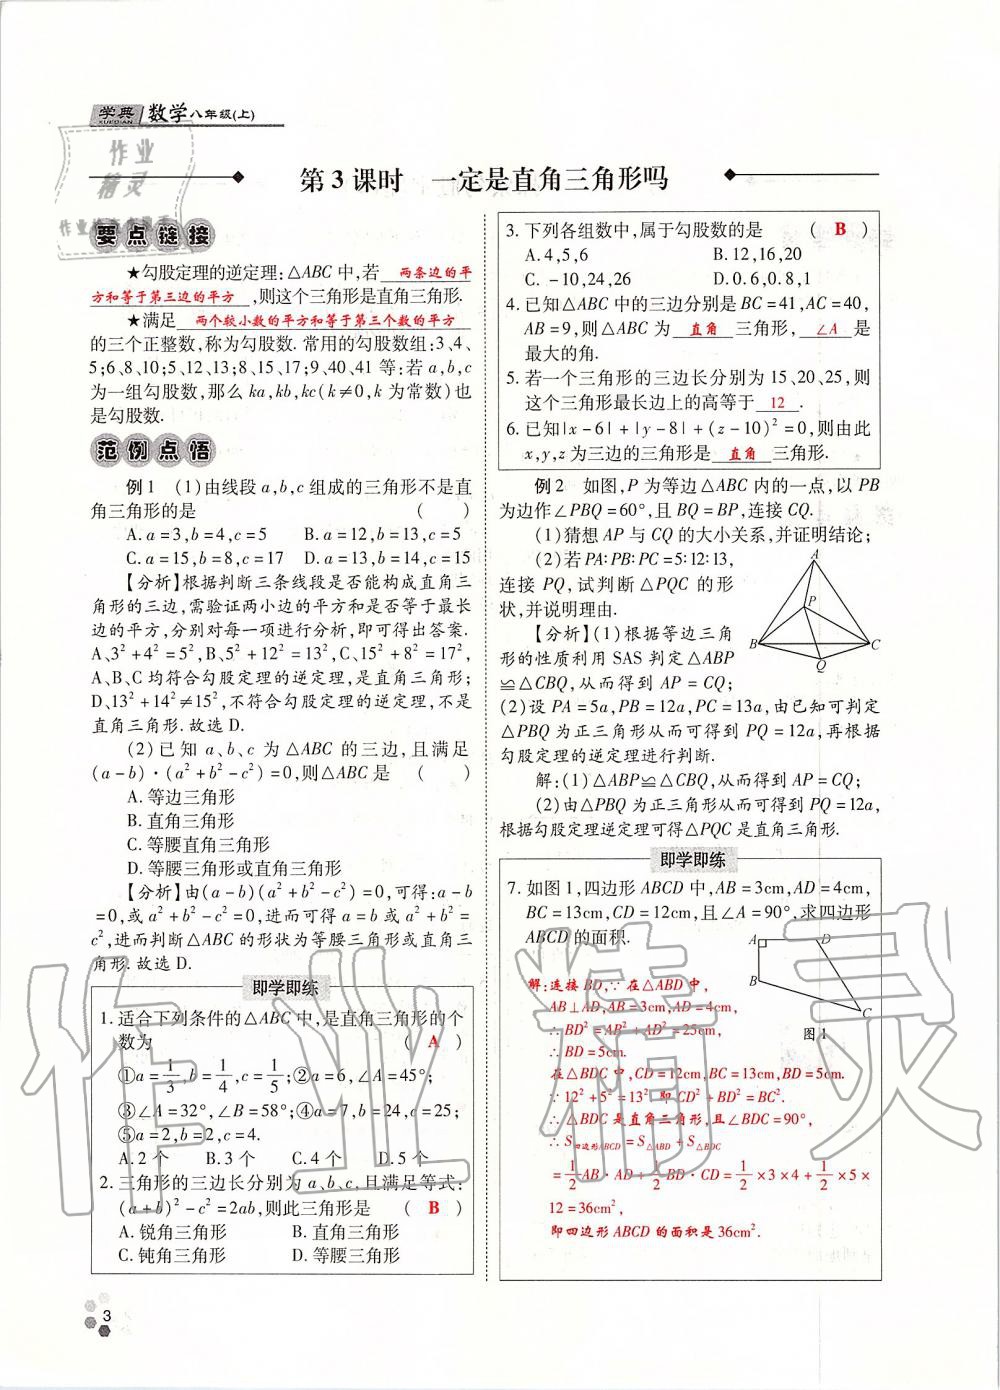 学典 数学八年级(上)
XUEDIAN
作业
精灵
第3课时 一定是直角三角形吗
要点链接
★勾股定理的逆定理:△ABC中,若 两条边的平
方和等于第三边的平方 ,则这个三角形是直角三角形.
★满足 两个较小数的平方和等于第三个数的平方
的三个正整数,称为勾股数. 常用的勾股数组:3、4、
5;6、8、10;5、12、13;8、15、17;9、40、41等:若a,b,c
为一组勾股数,那么ka,kb,kc(k≠0,k为常数)也
是勾股数.
范例点悟
例1 (1)由线段a,b,c组成的三角形不是直
角三角形的是 ( )
A. a=3,b=4,c=5 B. a=12,b=13,c=5
C. a=15,b=8,c=17 D. a=13,b=14,c=15
【分析】根据判断三条线段是否能构成直角三
角形的三边,需验证两小边的平方和是否等于最长
边的平方,分别对每一项进行分析,即可得出答案.
A、3²+4²=5²,B、5²+12²=13²,C、15²+8²=17²,
A、B、C均符合勾股定理的逆定理,是直角三角形;
D、13²+14²≠15²,不符合勾股定理的逆定理,不是
直角三角形.故选D.
(2)已知a、b、c为△ABC的三边,且满足
(a-b)·(a²+b²-c²)=0,则△ABC是 ( )
A. 等边三角形
B. 直角三角形
C. 等腰直角三角形
D. 等腰三角形或直角三角形
【分析】由(a-b)(a²+b²-c²)=0,可得:a-b
=0,或a²+b²-c²=0,进而可得a=b或a²+b²=
c²,进而判断△ABC的形状为等腰三角形或直角三
角形.故选D.
即学即练
1. 适合下列条件的△ABC中,是直角三角形的个
数为 ( A )
①a=1/3,b=1/4,c=1/5;②a=6,∠A=45°;
③∠A=32°,∠B=58°;④a=7,b=24,c=25;
⑤a=2,b=2,c=4.
A. 2个 B. 3个 C. 4个 D. 5个
2. 三角形的三边长分别为a、b、c,且满足等式:
(a+b)²-c²=2ab,则此三角形是 ( B )
A. 锐角三角形 B. 直角三角形
C. 钝角三角形 D. 等腰三角形
3
3. 下列各组数中,属于勾股数的是 ( B )
A. 4,5,6 B. 12,16,20
C. -10,24,26 D. 0.6,0.8,1
4. 已知△ABC中的三边分别是BC=41,AC=40,
AB=9,则△ABC为 直角 三角形, ∠A 是
最大的角.
5. 若一个三角形的三边长分别为15、20、25,则
这个三角形最长边上的高等于 12 .
6. 已知|x-6|+|y-8|+(z-10)²=0,则由此
x,y,z为三边的三角形是 直角 三角形.
例2 如图,P为等边△ABC内的一点,以PB
为边作∠PBQ=60°,且BQ=BP,连接CQ.
(1)猜想AP与CQ的大小关系,并证明结论;
(2)若PA:PB:PC=5:12:13,
连接PQ,试判断△PQC的形
状,并说明理由.
A
P
B
C
Q
【分析】(1)根据等边三角
形的性质利用SAS判定△ABP
≌△CBQ,从而得到AP=CQ;
(2)设PA=5a,PB=12a,PC=13a,由已知可判定
△PBQ为正三角形从而可得到PQ=12a,再根据
勾股定理的逆定理进行判断.
解:(1)△ABP≌△CBQ,从而得到AP=CQ;
(2)由△PBQ为正三角形从而可得到PQ=12a,
根据勾股定理逆定理可得△PQC是直角三角形.
即学即练
7. 如图1,四边形ABCD中,AB=3cm,AD=4cm,
BC=13cm,CD=12cm,且∠A=90°,求四边形
ABCD的面积.
A
D
B
C
图1
解:连接BD,∵在△ABD中,
AB⊥AD,AB=3cm,AD=4cm,
∴BD²=AB²+AD²=25cm,
∴BD=5cm.
在△BDC中,CD=12cm,BC=13cm,BD=5cm.
∵12²+5²=13²即CD²+BD²=BC².
∴△BDC是直角三角形,且∠BDC=90°,
∴S四边形ABCD=S△ABD+S△BDC
=1/2AB·AD+1/2BD·CD=1/2×3×4+1/2×5×
12=36cm²,
即四边形ABCD的面积是36cm².
作业精灵